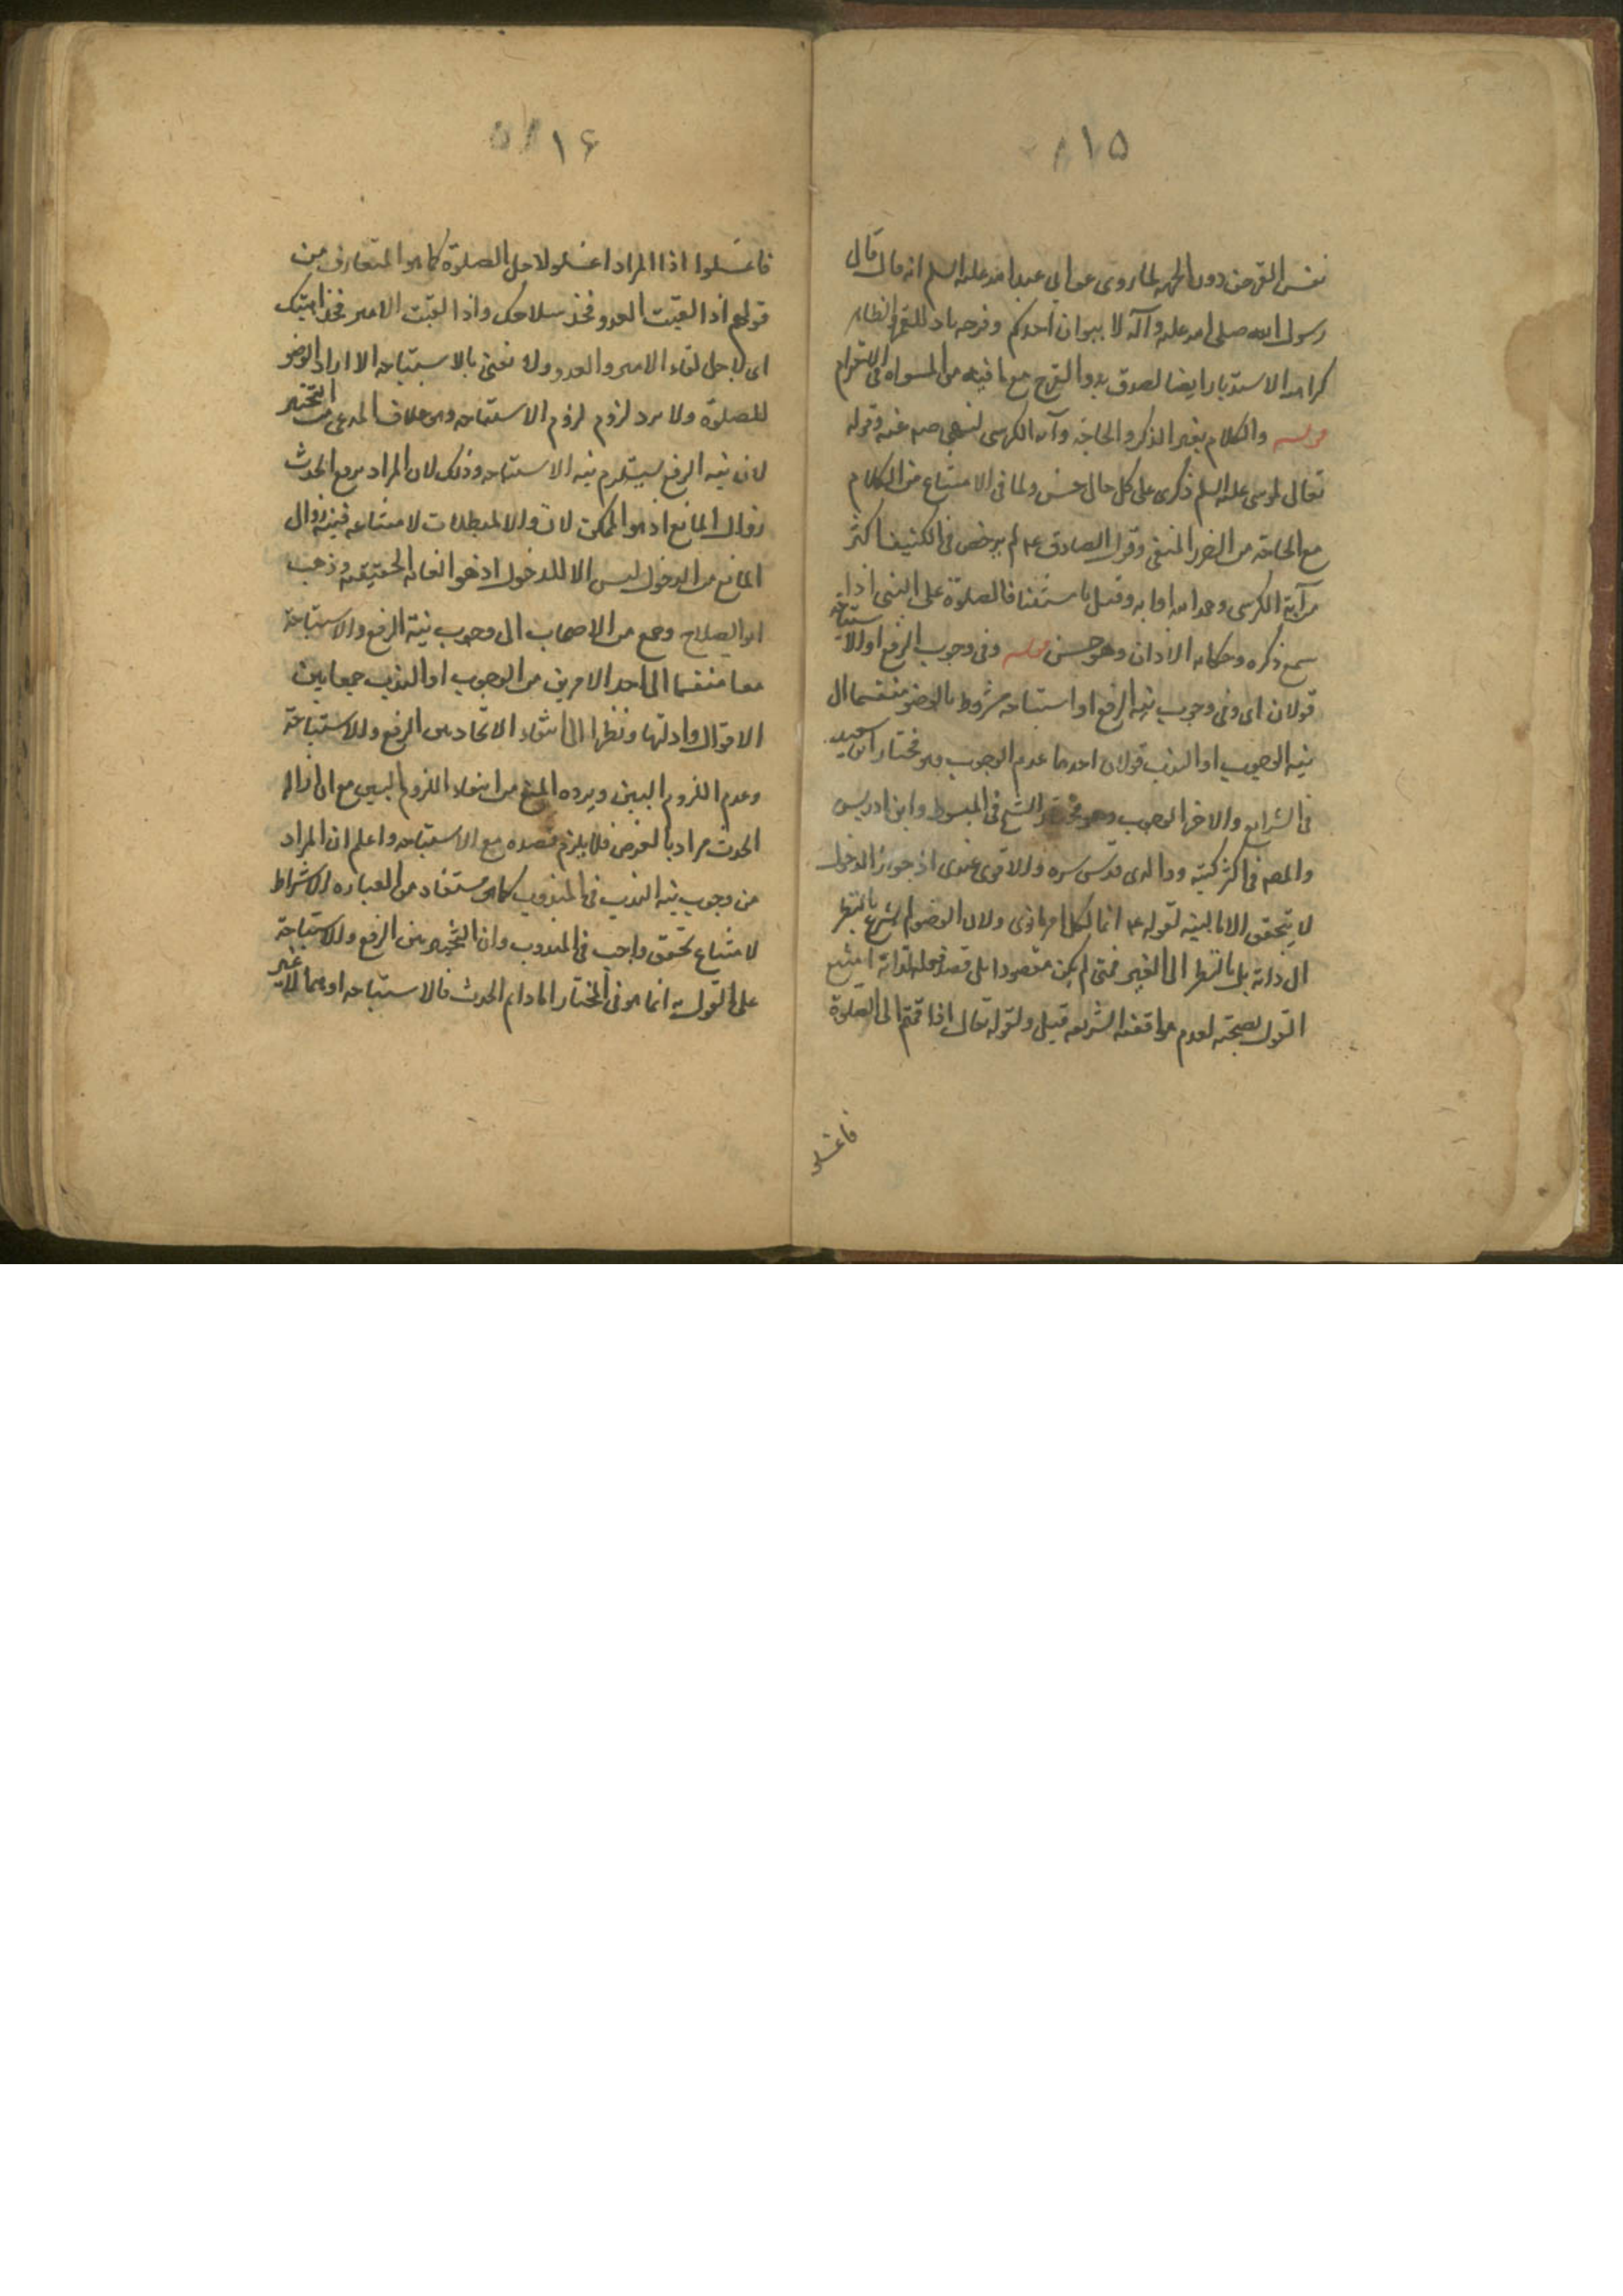 ١٥
نفس القرص دون الجهة لما روى عن ابى عبد الله عليه السلم انه قال قال
رسول الله صلى الله عليه وآله لا يبولن احدكم وفرجه باد للقمر
كراهه الاستدبار ايضا لصدق بدو الفرج مع ما فيه من المساواه فى الاحترام
قوله والكلام بغير الذكر والحاجة وآية الكرسى لنهى صه عنه وقوله
تعالى لموسى عليه السلم ذكرى على كل حال حسن ولما فى الامتناع من الكلام
مع الحاجة من الضرر المنفى وقول الصادق ع لم يرخص فى الكنيف اكثر
من آية الكرسى وحمد الله او آيه وقيل باستثنا الصلوة على النبى اذا
سمع ذكره وحكايه الاذان وهو حسن قوله وفى وجوب الرفع او الاستباحة
قولان اى وفى وجوب نية الرفع او استباحه مشروط بالوضو منضما الى
نية الوجوب او الندب قولان احدهما عدم الوجوب وهو مختار ابن سعيد
فى الشرايع والاخر الوجوب وهو مختار الشيخ فى المبسوط وابن ادريس
والمصه فى اكثر كتبه ووالدى قدس سره والاقوى عندى اذ جواز الدخول
لا يتحقق الا بالنية لقوله ع انما لكل امرء ما نوى ولان الوضو لم يشرع بالنظر
الى ذاته بل بالنظر الى الغير فمتى لم يكن مقصودا بل قصد فعله لذاته امتنع
القول بصحته لعدم موافقته الشريعه قيل ولقوله تعالى اذا قمتم الى الصلوة
فاغسلو
١۶
فاغسلوا اذا المراد اغسلوا لاجل الصلوة كما هو المتعارف من
قولهم اذا لقيت العدو فخذ سلاحك واذا لقيت الامير فخذ اهبتك
اى لاجل لقاء الامير والعدو ولا نعنى بالاستباحه الا اراده الوضو
للصلوة ولا يرد لزوم لزوم الاستباحه وهو خلاف المدعى من التخيير
لان نيه الرفع يستلزم نيه الاستباحه وذلك لان المراد برفع الحدث
زوال المانع اذ هو الممكن لان والا لمبطلات لامتناعه فنيه زوال
المانع من الدخول ليس الا للدخول اذ هو الغايه الحقيقيه وذهب
ابو الصلاح وجمع من الاصحاب الى وجوب نية الرفع والاستباحة
معا منضما الى احد الامرين من الوجوب او الندب جمعا بين
الاقوال وادلتها ونظرا الى انتفاء الاتحاد بين الرفع والاستباحة
وعدم اللزوم البين ويرده المنع من انتفاء اللزوم البين مع ان ازاله
الحدث مراد بالعرض فلا يلزم قصده مع الاستباحه واعلم ان المراد
من وجوب نيه الندب فى المندوب كما هو مستفاد من العباره الاشتراط
لامتناع تحقق واجب فى المندوب وان التخيير بين الرفع والاستباحة
على القول به انما هو فى المختار اما دايم الحدث فالاستباحه او هما لا غير